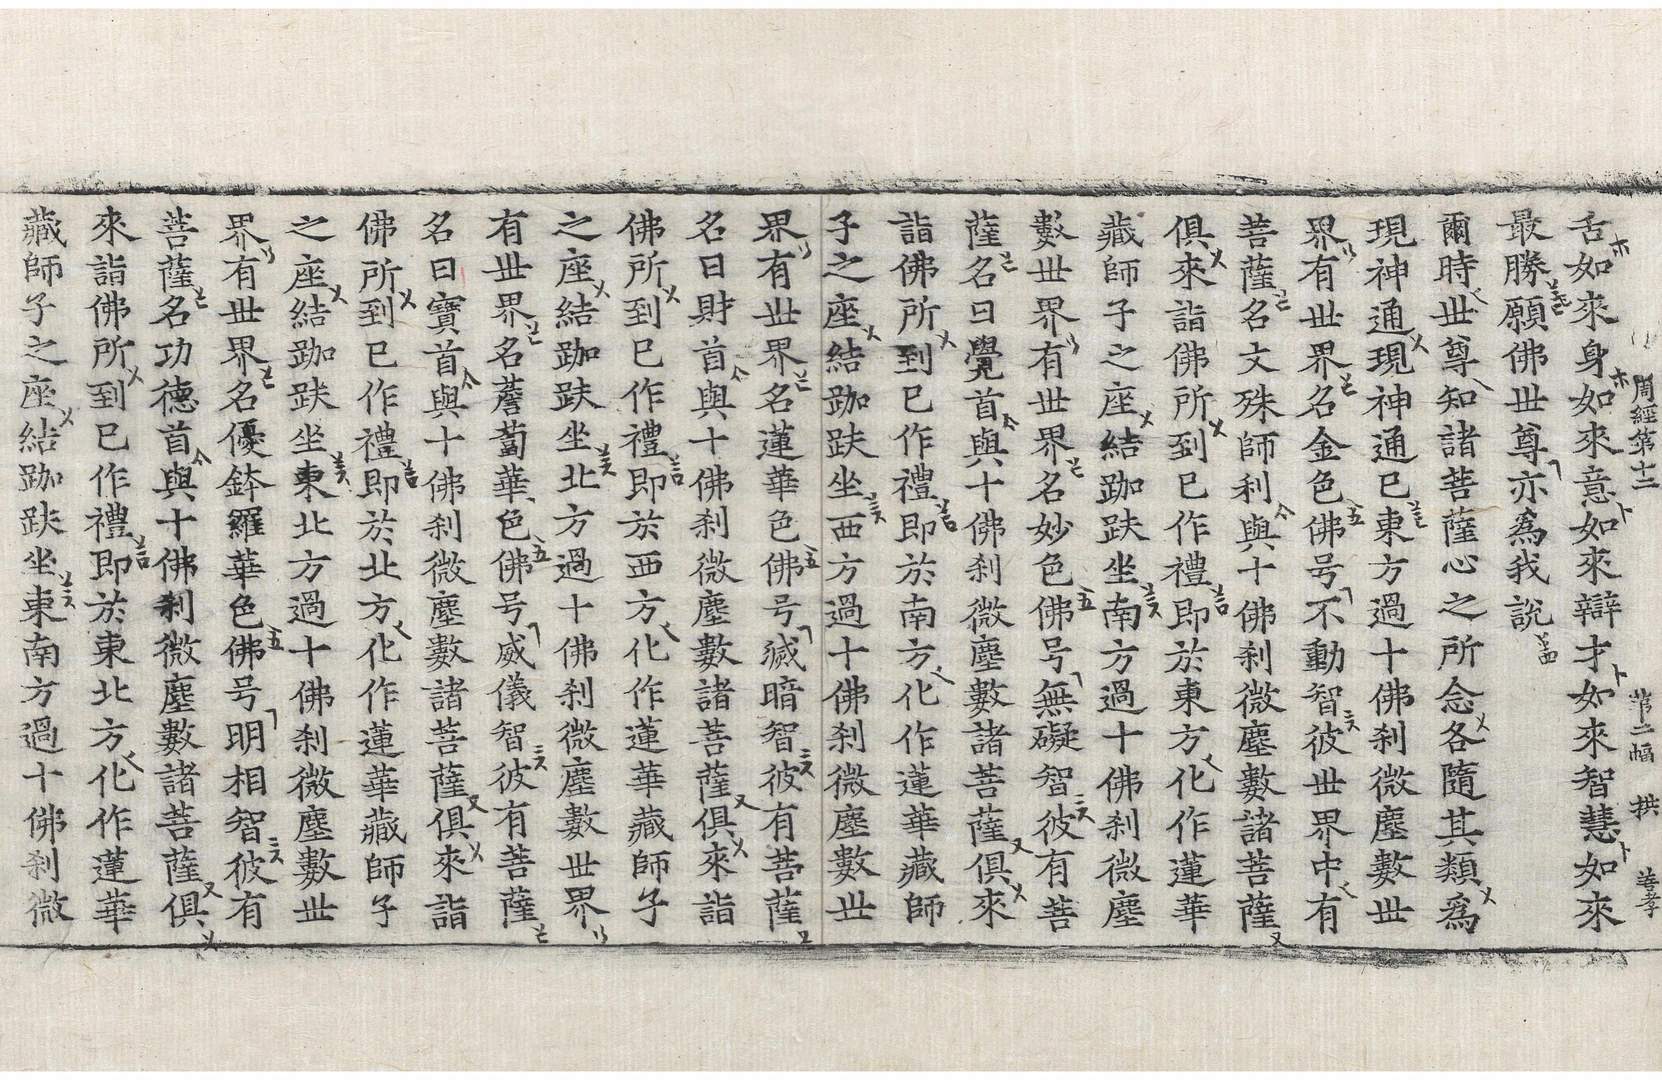 周經第十二 第二幅 拱
舌如來身如來意如來辯才如來智慧如來
最勝願佛世尊亦為我說
爾時世尊知諸菩薩心之所念各隨其類為
現神通現神通已東方過十佛刹微塵數世
界有世界名金色佛号不動智彼世界中有
菩薩名文殊師利與十佛刹微塵數諸菩薩
俱來詣佛所到已作禮即於東方化作蓮華
藏師子之座結跏趺坐南方過十佛刹微塵
數世界有世界名妙色佛号無礙智彼有菩
薩名曰覺首與十佛刹微塵數諸菩薩俱來
詣佛所到已作禮即於南方化作蓮華藏師
子之座結跏趺坐西方過十佛刹微塵數世
界有世界名蓮華色佛号滅暗智彼有菩薩
名曰財首與十佛刹微塵數諸菩薩俱來詣
佛所到已作禮即於西方化作蓮華藏師子
之座結跏趺坐北方過十佛刹微塵數世界
有世界名薝蔔華色佛号威儀智彼有菩薩
名曰寶首與十佛刹微塵數諸菩薩俱來詣
佛所到已作禮即於北方化作蓮華藏師子
之座結跏趺坐東北方過十佛刹微塵數世
界有世界名優鉢羅華色佛号明相智彼有
菩薩名功德首與十佛刹微塵數諸菩薩俱
來詣佛所到已作禮即於東北方化作蓮華
藏師子之座結跏趺坐東南方過十佛刹微